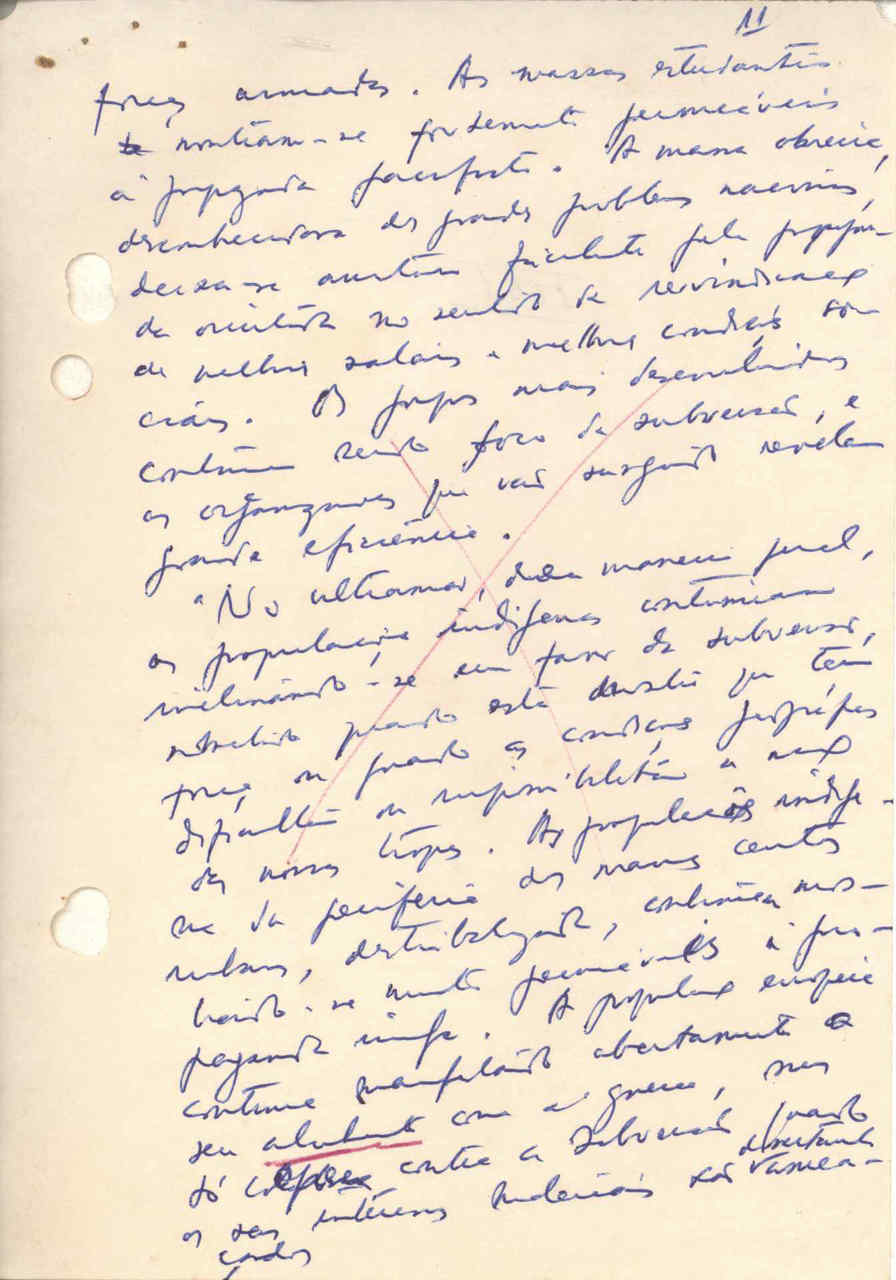 11
forças armadas. As massas estudantis
mostram-se fortemente permeáveis
à propaganda pacifista. A massa obreira,
desconhecedora dos grandes problemas nacionais,
deixa-se orientar facilmente pela propagan-
da orientada no sentido da reivindicação
de melhores salários e melhores condições so-
ciais. Os grupos mais desenvolvidos
continuam sendo foco da subversão, e
as organizações que vão surgindo revelam
grande eficiência.
"No ultramar, duma maneira geral,
as populações indígenas continuam
inclinando-se em favor da subversão,
sobretudo quando esta demonstra que tem
força, ou quando as condições geográficas
dificultam ou impossibilitam a acção
das nossas tropas. As populações indíge-
nas da periferia dos maiores centros
urbanos, destribalizadas, continuam mos-
trando-se muito permeáveis à pro-
paganda inimiga. A população europeia
continua manifestando abertamente o
seu com a guerra, mas
só contra a subversão quando
os seus interesses materiais são directamente amea-
çados